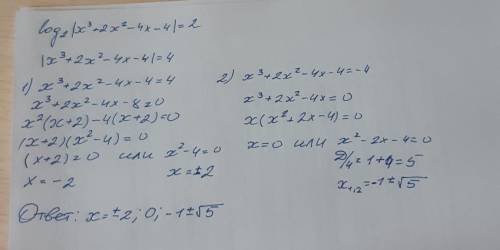 log₂|x³+2x²-4x-4|=2
|x³+2x²-4x-4|=4
1) x³+2x²-4x-4=4
x³+2x²-4x-8=0
x²(x+2)-4(x+2)=0
(x+2)(x²-4)=0
(x+2)=0 или x²-4=0
x=-2 x=±2
2) x³+2x²-4x-4=-4
x³+2x²-4x=0
x(x²+2x-4)=0
x=0 или x²-2x-4=0
D/4=1+4=5
x₁,₂=-1±√5
Ответ: x=±2; 0; -1±√5